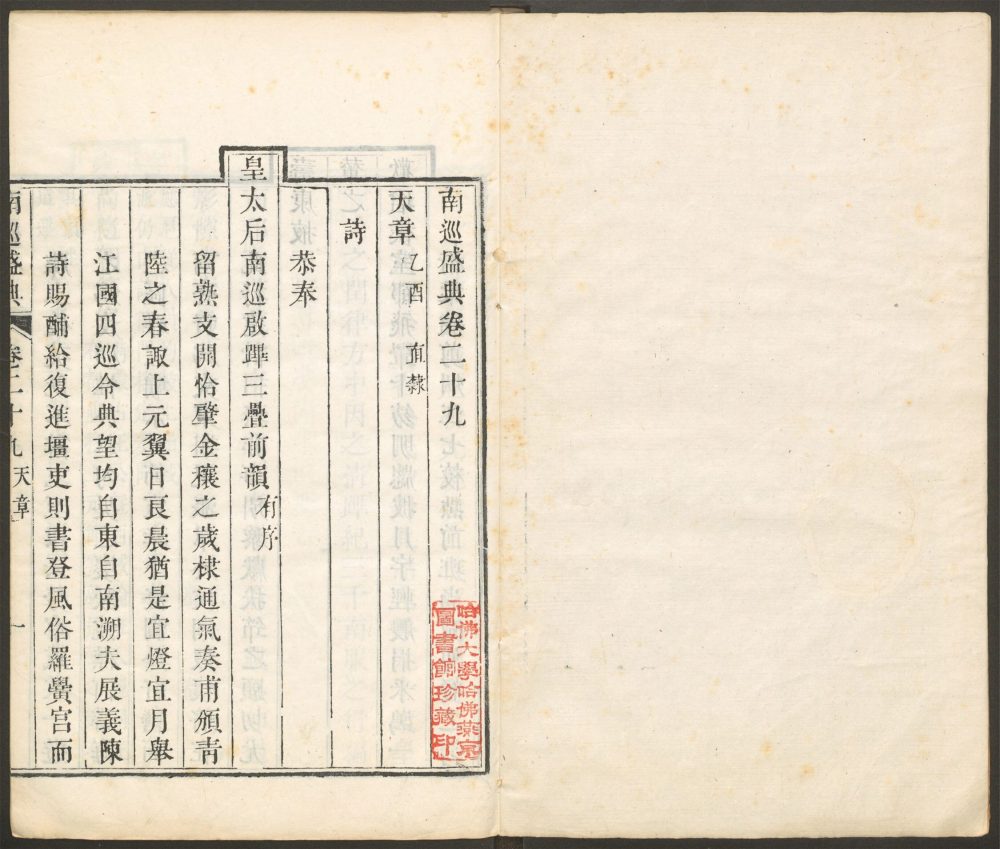 南巡盛典卷二十九
天章 乙酉 直隸
詩
恭奉
皇太后南巡啟蹕三疊前韻 有序
留熟支開恰肇金穰之歲棣通氣奏甫頒青
陸之春諏上元翼日良晨猶是宜燈宜月舉
江國四巡令典望均自東自南溯夫展義陳
詩賜酺給復進壃吏則書登風俗羅黌宮而
南巡盛典 卷二十九 天章 一
哈佛大學哈佛燕京
圖書館珍藏印